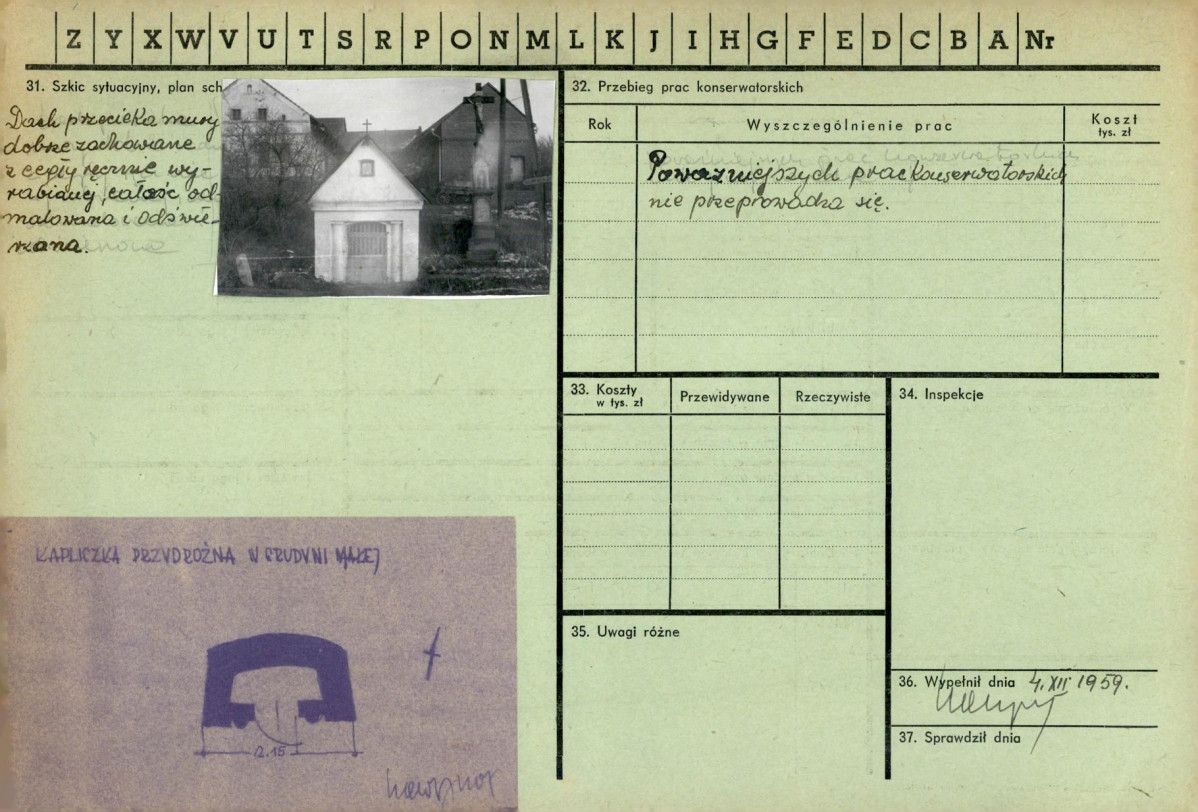 Z Y X W V U T S R P O N M L K J I H G F E D C B A Nr
31. Szkic sytuacyjny, plan sch
Dach przecieka mury
dobrze zachowane
z cegły ręcznie wy-
rabianej, całość od-
malowana i odświe-
rzana.
32. Przebieg prac konserwatorskich
Rok
Wyszczególnienie prac
Koszt
tys. zł
Poważniejszych prac konserwatorskich
nie przeprowadza się.
33. Koszty
w tys. zł
Przewidywane
Rzeczywiste
34. Inspekcje
35. Uwagi różne
36. Wypełnił dnia 4.XII 1959.
37. Sprawdził dnia
KAPLICZKA PRZYDROŻNA W GRUDYNI MAŁEJ
2.15